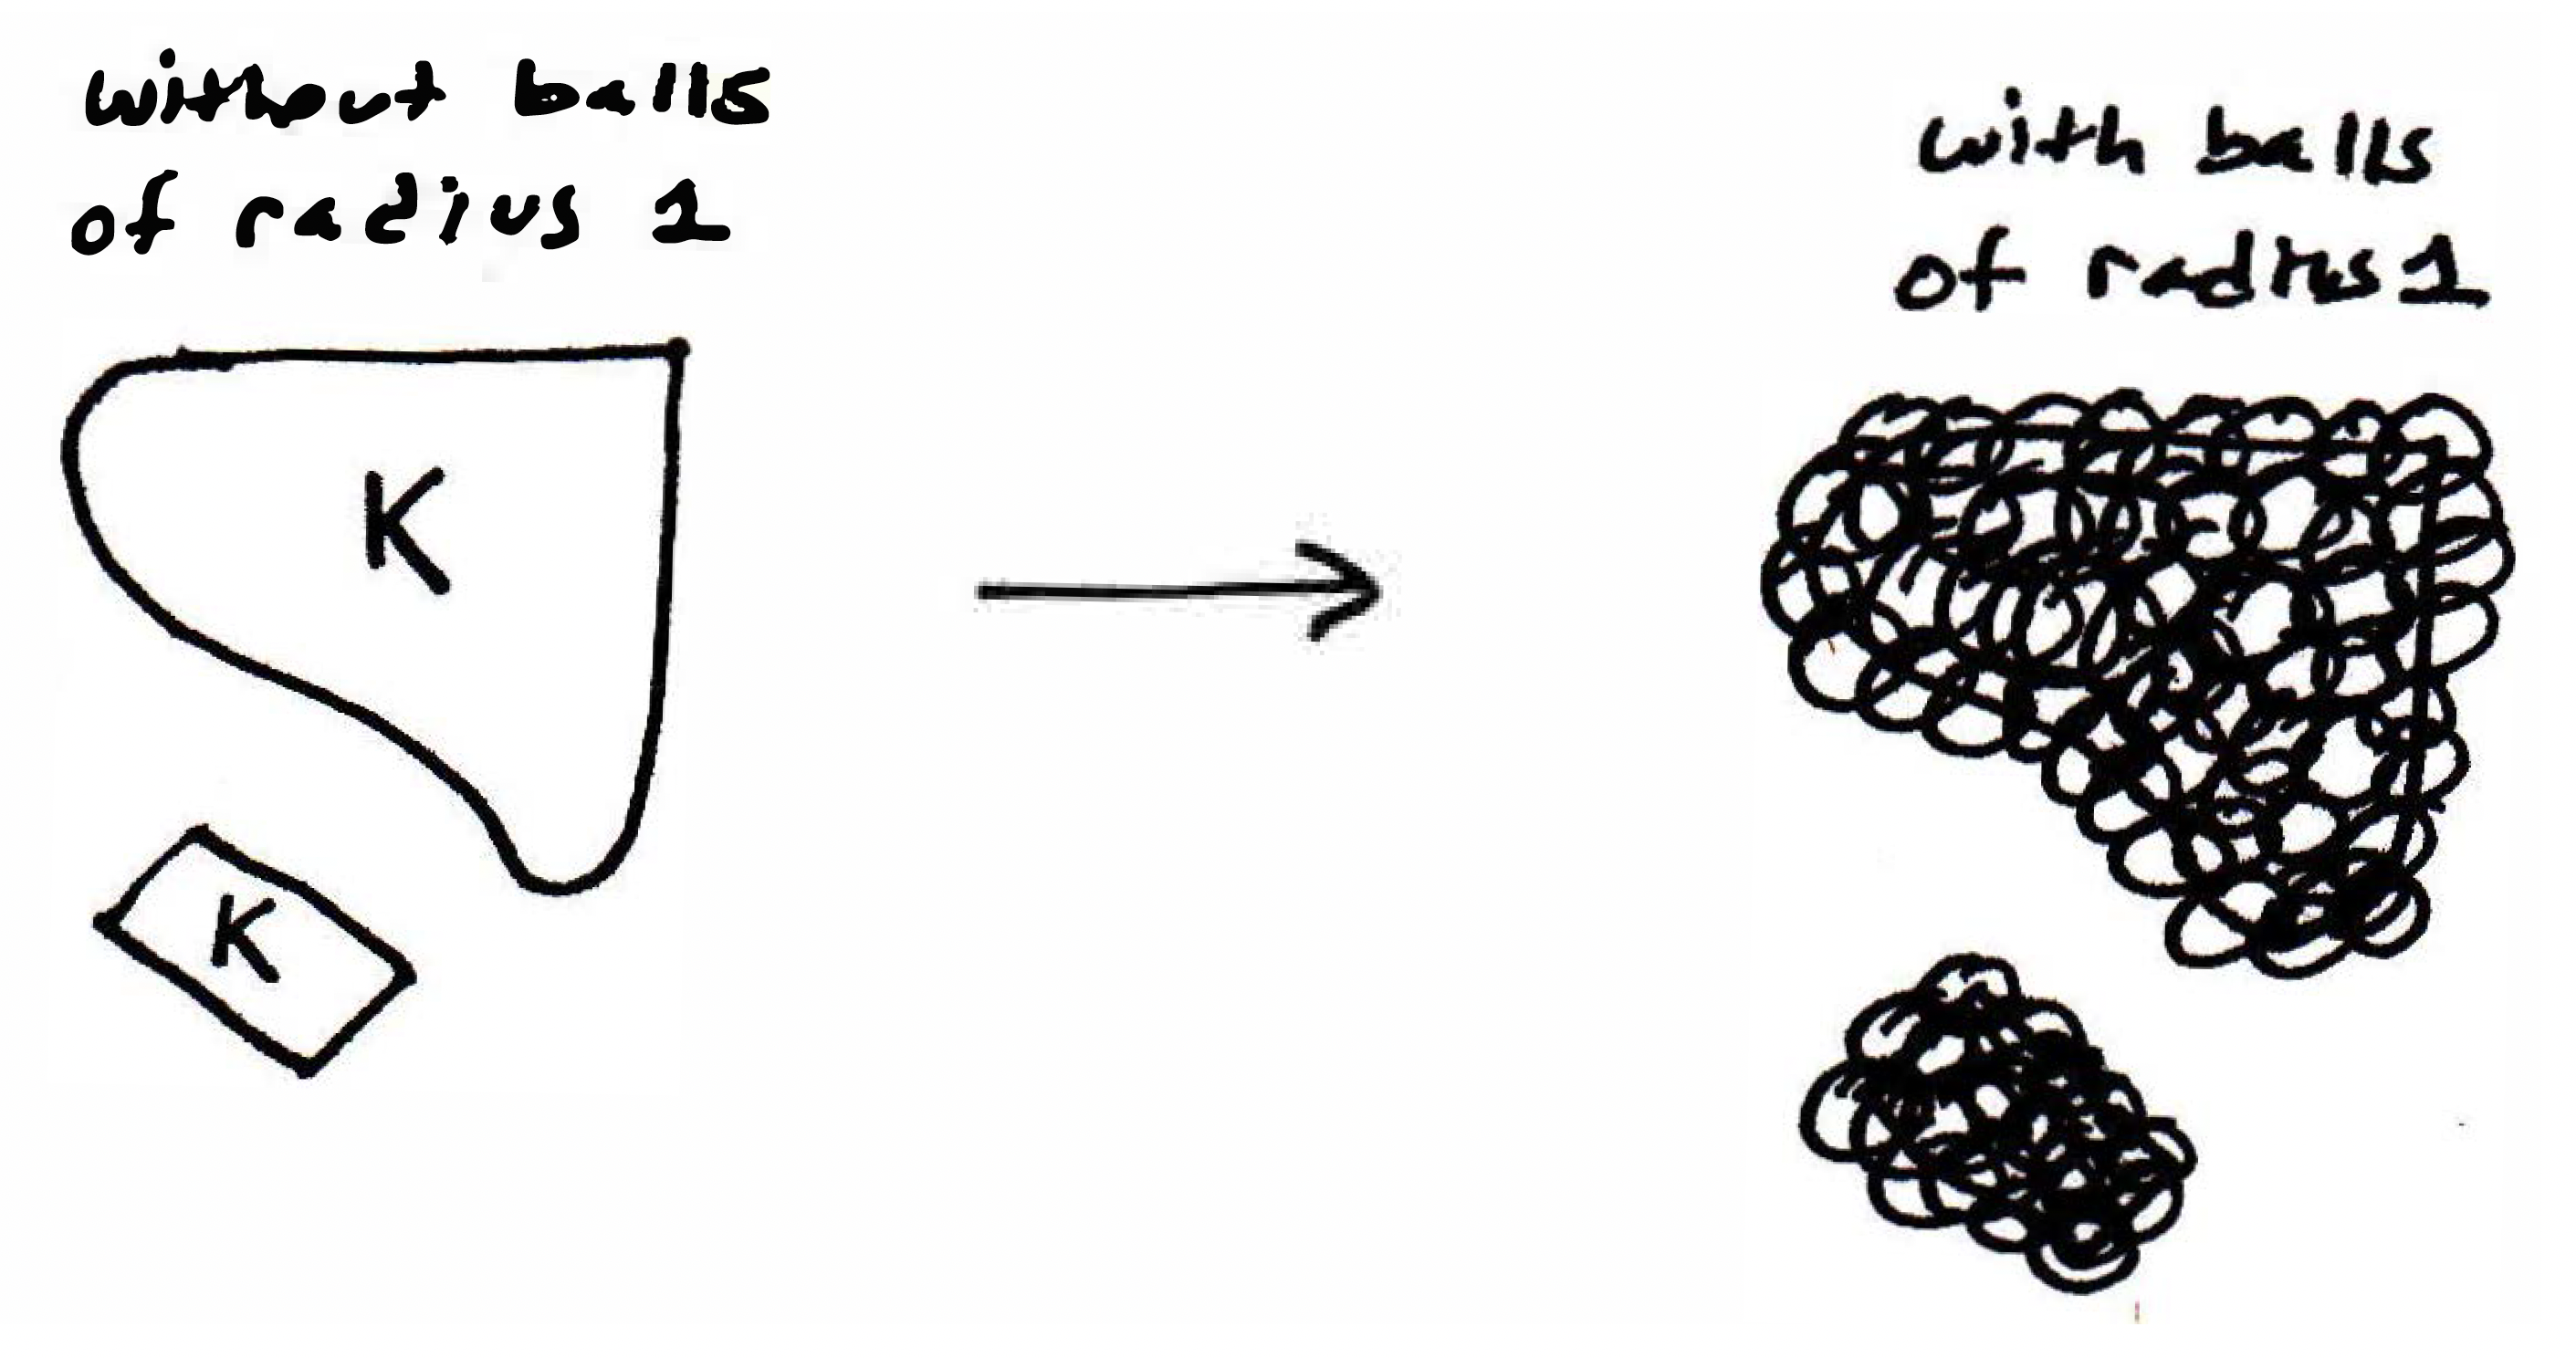 without balls
of radius 1
with balls
of radius 1
K
K